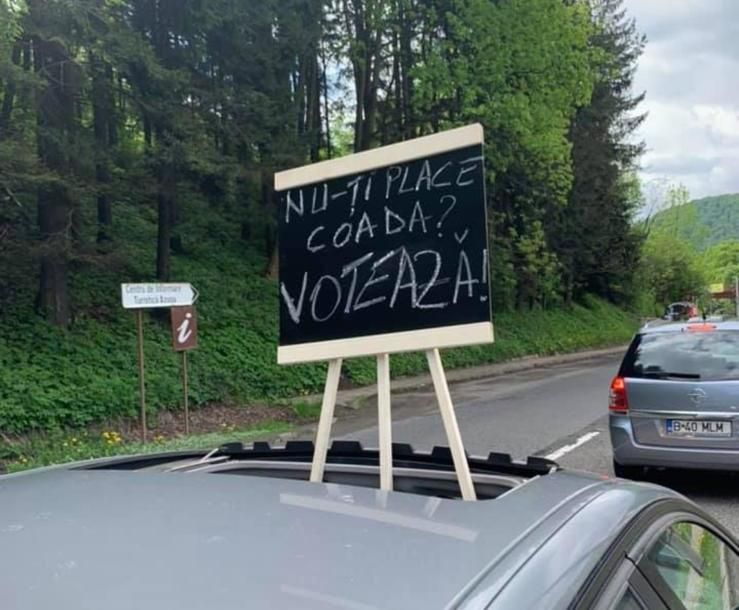 NU-ȚI PLACE
COADA?
VOTEAZĂ!
Centru de Informare
Turistică Azuga
i
B-40 MLM